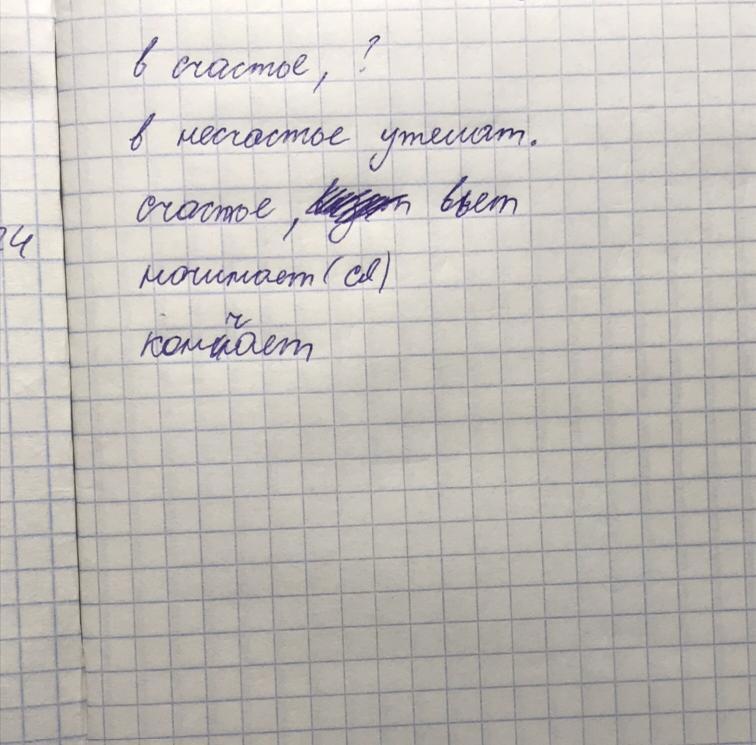 в счастье, ?
в несчастье утешат.
счастье, вьет
24 начинает(ся)
кончает